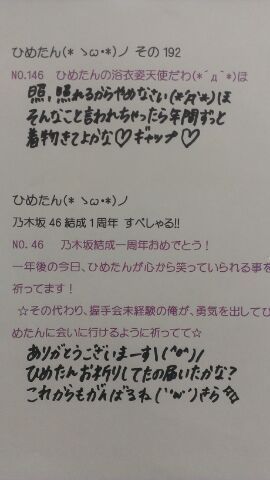 ひめたん(*ゝω・*)ノ その192
NO.146 ひめたんの浴衣姿天使だわ(*´д｀*)ほ
照、照れるからやめなさい(*´д`*)ほ
そんなこと言われちゃったら年間ずっと
着物きてよかな♡ギャップ♡
ひめたん(*ゝω・*)ノ
乃木坂46結成1周年 すぺしゃる!!
NO.46 乃木坂結成一周年おめでとう！
一年後の今日、ひめたんが心から笑っていられる事を
祈ってます！
☆その代わり、握手会未経験の俺が、勇気を出してひ
めたんに会いに行けるように祈ってて☆
ありがとうございまーす\(^o^)/
ひめたんお祈りしてたの届いたかな？
これからもがんばるね('ω')きら